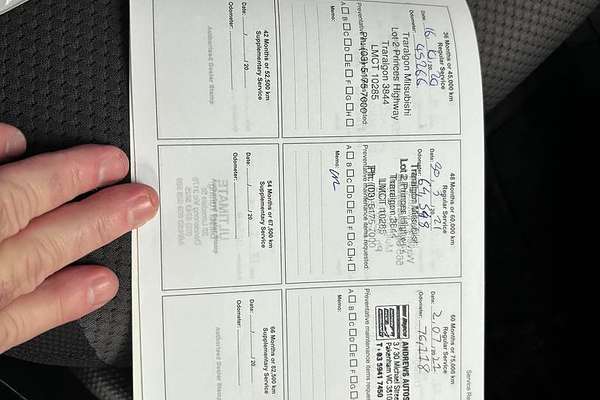 Service Re
36 Months or 45,000 km
Regular Service
Date:
Odometer: 45266
Traralgon Mitsubishi
Lot 2 Princes Highway
Traralgon 3844
LMCT 10285
Ph: (03) 5175 7000
Preventative maintenance items requested:
A B C D E F G H
Memo:
42 Months or 52,500 km
Supplementary Service
Date: / / 20
Odometer:
Authorised Dealer Stamp
48 Months or 60,000 km
Regular Service
Date:
Odometer: 64,598
Traralgon Mitsubishi
Lot 2 Princes Highway
Traralgon 3844
LMCT 10285
Ph: (03) 5175 7000
Preventative maintenance items requested:
A B C D E F G H
Memo:
54 Months or 67,500 km
Supplementary Service
Date: / / 20
Odometer:
60 Months or 75,000 km
Regular Service
Date:
Odometer: 76,118
ANDREWS AUTOS
3 / 30 Michael Stree
Pakenham VIC 3810
T • 03 5941 7450
Preventative maintenance items reques
A B C D E F
Memo:
66 Months or 82,500 km
Supplementary Service
Date: / / 20
Odometer:
Authorised Dealer Stamp